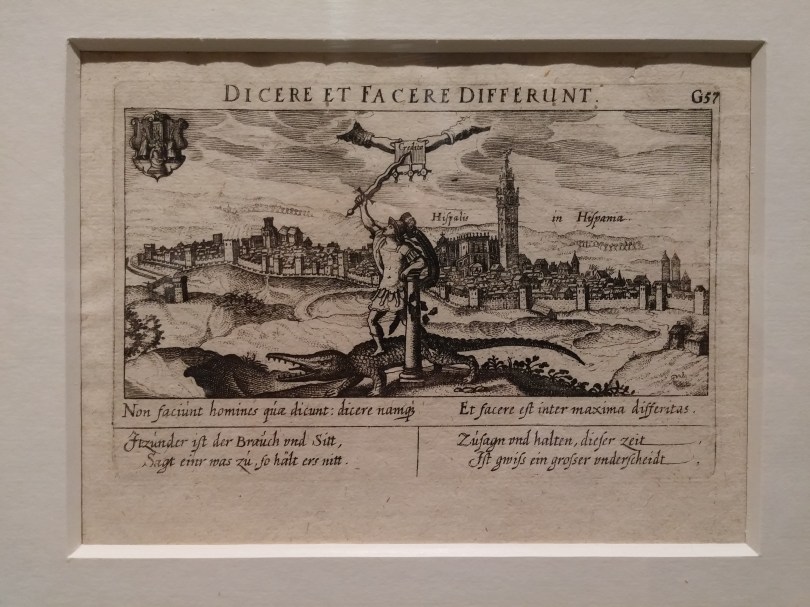 DICERE ET FACERE DIFFERUNT.
G57
Hispalis in Hispania.
Non faciunt homines quæ dicunt: dicere namq;
Et facere est inter maxima differitas.
Itzúnder ist der Braúch vnd Sitt,
Sagt einr was zú, so hält ers nitt.
Zúsagn vnd halten, dieser zeit
Ist gwiss ein grosser vnderscheidt.